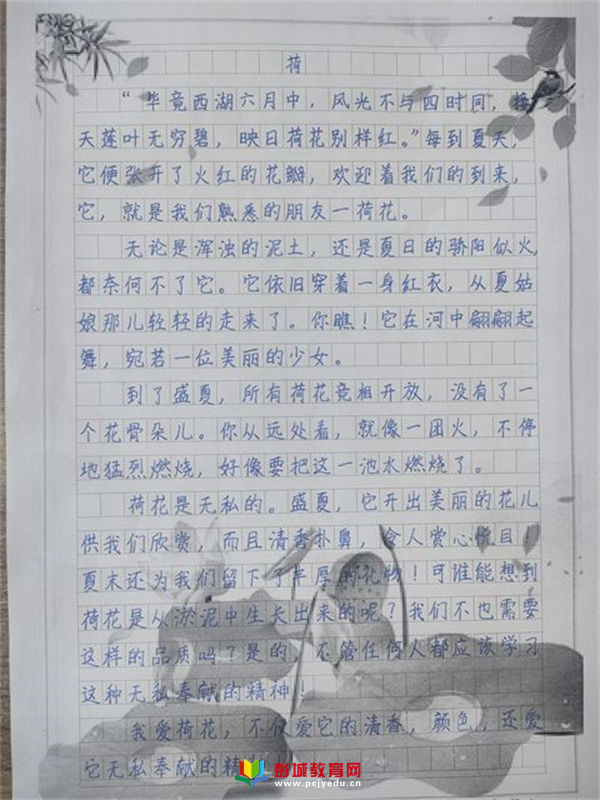 荷
“毕竟西湖六月中，风光不与四时同，接
天莲叶无穷碧，映日荷花别样红。”每到夏天，
它便张开了火红的花瓣，欢迎着我们的到来，
它，就是我们熟悉的朋友一荷花。
无论是浑浊的泥土，还是夏日的骄阳似火，
都奈何不了它。它依旧穿着一身红衣，从夏姑
娘那儿轻轻的走来了。你瞧！它在河中翩翩起
舞，宛若一位美丽的少女。
到了盛夏，所有荷花竞相开放，没有了一
个花骨朵儿。你从远处看，就像一团火，不停
地猛烈燃烧，好像要把这一池水燃烧了。
荷花是无私的。盛夏，它开出美丽的花儿
供我们欣赏，而且清香扑鼻，令人赏心悦目！
夏末还为我们留下了丰厚的礼物！可谁能想到
荷花是从淤泥中生长出来的呢？我们不也需要
这样的品质吗？是的，不管任何人都应该学习
这种无私奉献的精神！
我爱荷花，不仅爱它的清香，颜色，还爱
它无私奉献的精
彭城教育网
www.pcjyedu.cn